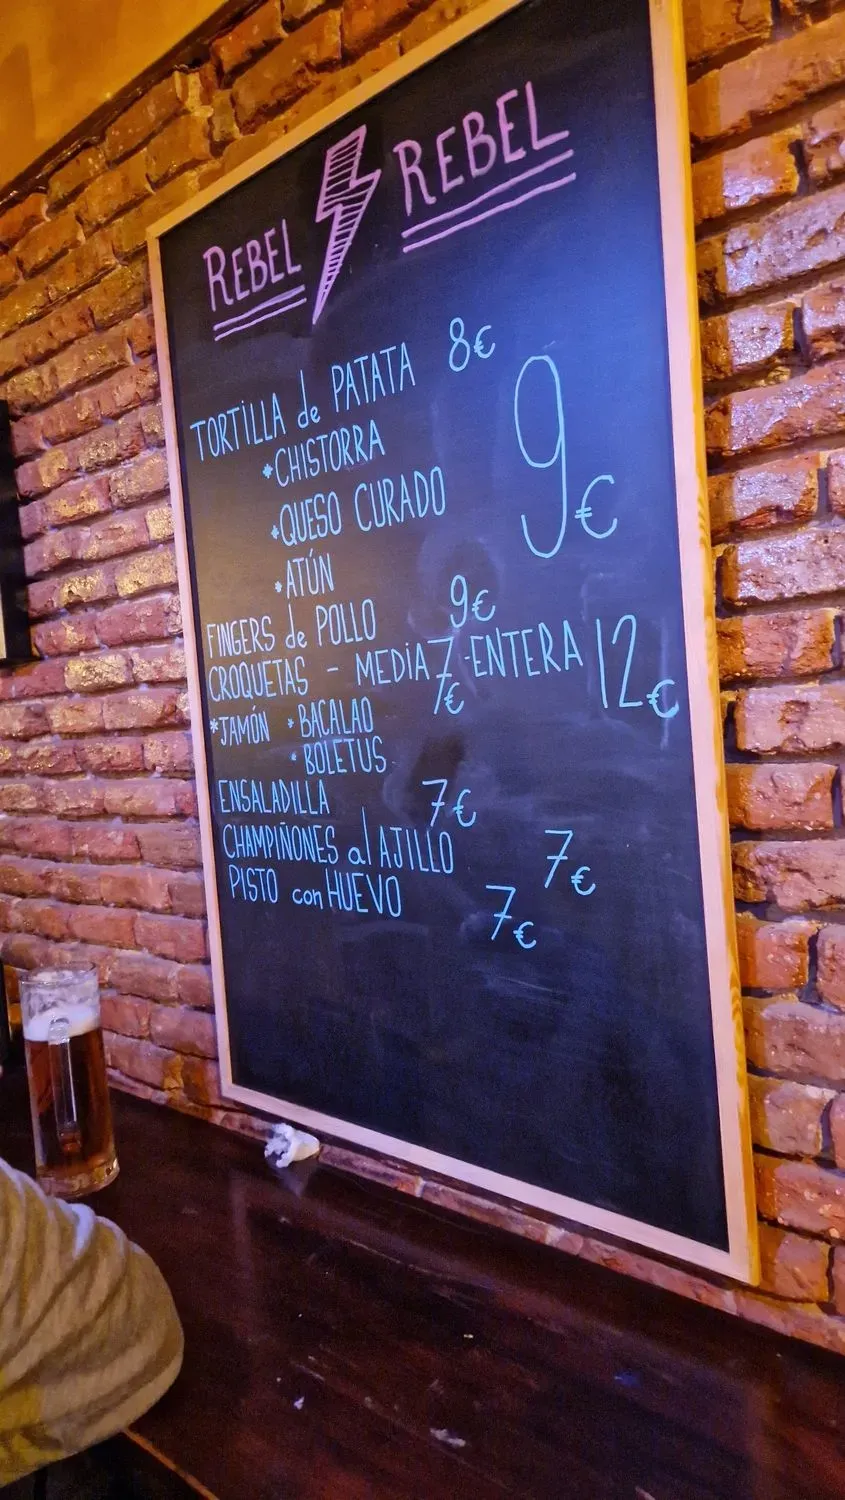 REBEL REBEL
TORTILLA de PATATA 8€
*CHISTORRA
*QUESO CURADO 9€
*ATÚN
FINGERS de POLLO 9€
CROQUETAS - MEDIA 7€ - ENTERA 12€
*JAMÓN *BACALAO
*BOLETUS
ENSALADILLA 7€
CHAMPIÑONES al AJILLO 7€
PISTO con HUEVO 7€